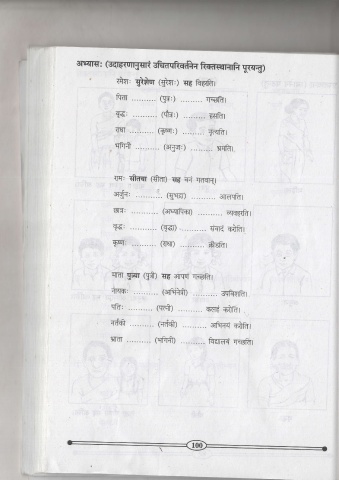 अभ्यासः (उदाहरणानुसारं उचितपरिवर्तनेन रिक्तस्थानानि पूरयन्तु)
रमेशः सुरेशेण (सुरेशः) सह विहरति।
पिता .......... (पुत्रः) ......... गच्छति।
वृद्धः .......... (पौत्रः) ......... हसति।
राधा .......... (कृष्णः) ......... नृत्यति।
भगिनी .......... (अनुजः) ......... भ्रमति।
रामः सीतया (सीता) सह वनं गतवान्।
अर्जुनः .......... (सुभद्रा) .......... आलपति।
छात्रः .......... (अध्यापिका) ......... व्यवहरति।
वृद्धः .......... (वृद्धा) ......... संवादं करोति।
कृष्णः .......... (राधा) .......... क्रीडति।
माता पुत्र्या (पुत्री) सह आपणं गच्छति।
नायकः .......... (अभिनेत्री) ......... उपविशति।
पतिः .......... (पत्नी) ......... कलहं करोति।
नर्तकी .......... (नर्तकी) .......... अभिनयं करोति।
भ्राता .......... (भगिनी) .......... विद्यालयं गच्छति।
100